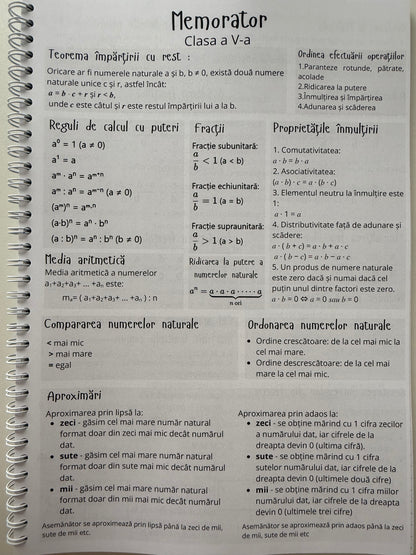 Memorator
Clasa a V-a
Teorema împărțirii cu rest :
Oricare ar fi numerele naturale a și b, b ≠ 0, există două numere
naturale unice c și r, astfel încât:
a = b · c + r și r < b.
unde c este câtul și r este restul împărțirii lui a la b.
Ordinea efectuării operațiilor
1.Paranteze rotunde, pătrate,
acolade
2.Ridicarea la putere
3.Înmulțirea și împărțirea
4.Adunarea și scăderea
Reguli de calcul cu puteri
a⁰ = 1 (a ≠ 0)
a¹ = a
aᵐ · aⁿ = aᵐ⁺ⁿ
aᵐ : aⁿ = aᵐ⁻ⁿ (a ≠ 0)
(aᵐ)ⁿ = aᵐ·ⁿ
(a·b)ⁿ = aⁿ · bⁿ
(a : b)ⁿ = aⁿ : bⁿ (b ≠ 0)
Media aritmetică
Media aritmetică a numerelor
a₁+a₂+a₃+ ... +aₙ este:
mₐ= ( a₁+a₂+a₃+ ... +aₙ ) : n
Fracții
Fracție subunitară:
a/b < 1 (a < b)
Fracție echiunitară:
a/b = 1 (a = b)
Fracție supraunitară:
a/b > 1 (a > b)
Ridicarea la putere a
numerelor naturale
aⁿ = a · a · a · ···· · a
n ori
Proprietățile înmulțirii
1. Comutativitatea:
a · b = b · a
2. Asociativitatea:
(a · b) · c = a · (b · c)
3. Elementul neutru la înmulțire este
1:
a · 1 = a
4. Distributivitate față de adunare și
scădere:
a · ( b + c) = a · b + a · c
a · ( b − c) = a · b − a · c
5. Un produs de numere naturale
este zero dacă și numai dacă cel
puțin unul dintre factori este zero.
a · b = 0 ⇔ a = 0 sau b = 0
Compararea numerelor naturale
< mai mic
> mai mare
= egal
Ordonarea numerelor naturale
• Ordine crescătoare: de la cel mai mic la
cel mai mare.
• Ordine descrescătoare: de la cel mai
mare la cel mai mic.
Aproximări
Aproximarea prin lipsă la:
• zeci - găsim cel mai mare număr natural
format doar din zeci mai mic decât numărul
dat.
• sute - găsim cel mai mare număr natural
format doar din sute mai mic decât numărul
dat.
• mii - găsim cel mai mare număr natural
format doar din mii mai mic decât numărul
dat.
Asemănător se aproximează prin lipsă până la zeci de mii,
sute de mii etc.
Aproximarea prin adaos la:
• zeci - se obține mărind cu 1 cifra zecilor
a numărului dat, iar cifrele de la
dreapta devin 0 (ultima cifră).
• sute - se obține mărind cu 1 cifra
sutelor numărului dat, iar cifrele de la
dreapta devin 0 (ultimele două cifre)
• mii - se obține mărind cu 1 cifra miilor
numărului dat, iar cifrele de la dreapta
devin 0 (ultimele trei cifre)
Asemănător se aproximează prin adaos până la zeci de
mii, sute de mii etc